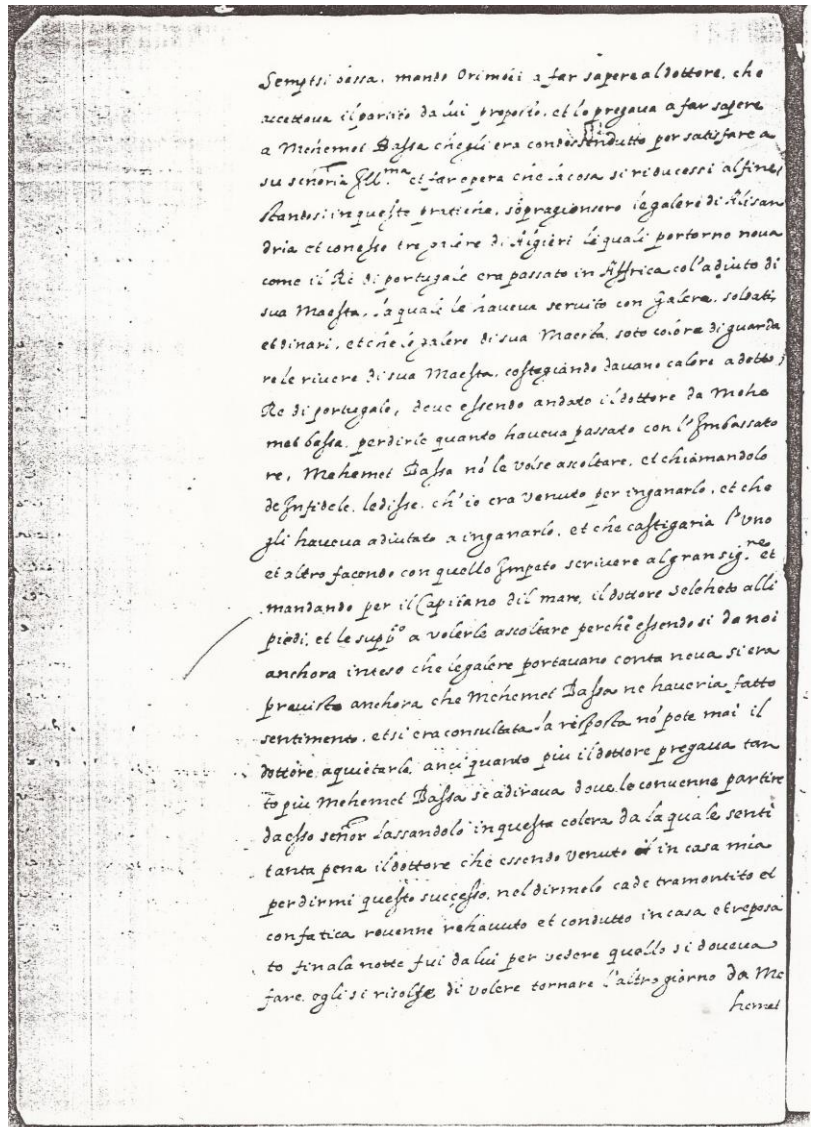 bassa. mando Orimbei a far sapere al dottore, che
accettava il partito da lui proposto. et lo pregava a far sapere
a Mehemet Bassa che gli era condutto per satisfare a
su señoria Ill.ma et far opera che la cosa si riducessi al fine,
standosi in queste pratiche, sopragionsero le galere di Alisan
dria et con esso tre galere di Algieri le quali portorno nova
come il Re di portugale era passato in Affrica col'adiuto di
sua Maesta, la quale le haveva servito con galere, soldati,
et dinari, et che le galere di sua Maesta, soto colore di guarda
re le rivere di sua Maesta, costegiando davano calore a detto
Re di portugale, deve essendo andato il dottore da Mehe
met bassa. per dirle quanto haveva passato con l'Imbassato
re, Mehemet Bassa nó le volse ascoltare, et chiamandolo
de Infidele, le disse, ch'io era venuto per inganarlo, et che
gli haveva adiutato a inganarlo, et che castigaria l'uno
et altro facendo con quello Impeto scrivere al gran sig.re et
mandando per il Capitano dil mare, il dottore seleheto alli
piedi, et le supp.o a volerle ascoltare perche essendosi da noi
anchora inteso che le galere portavano conta neva si era
previsto anchora che Mehemet Bassa ne haveria fatto
sentimento, et si era consultata la risposta nó pote mai il
dottore aquietarle, anci quanto piu il dottore pregava tan
to piu Mehemet Bassa se adirava dove lo convenne partire
da esso señor lassandolo in questa colera da la quale senti
tanta pena il dottore che essendo venuto in casa mia
per dirmi questo successo, nel dirmelo cade tramontito et
con fatica rovenne rehavuto et condutto in casa et reposa
to fin a la notte fui da lui per vedere quello si doveva
fare, egli si risolse di volere tornare l'altro giorno da Me
hemet